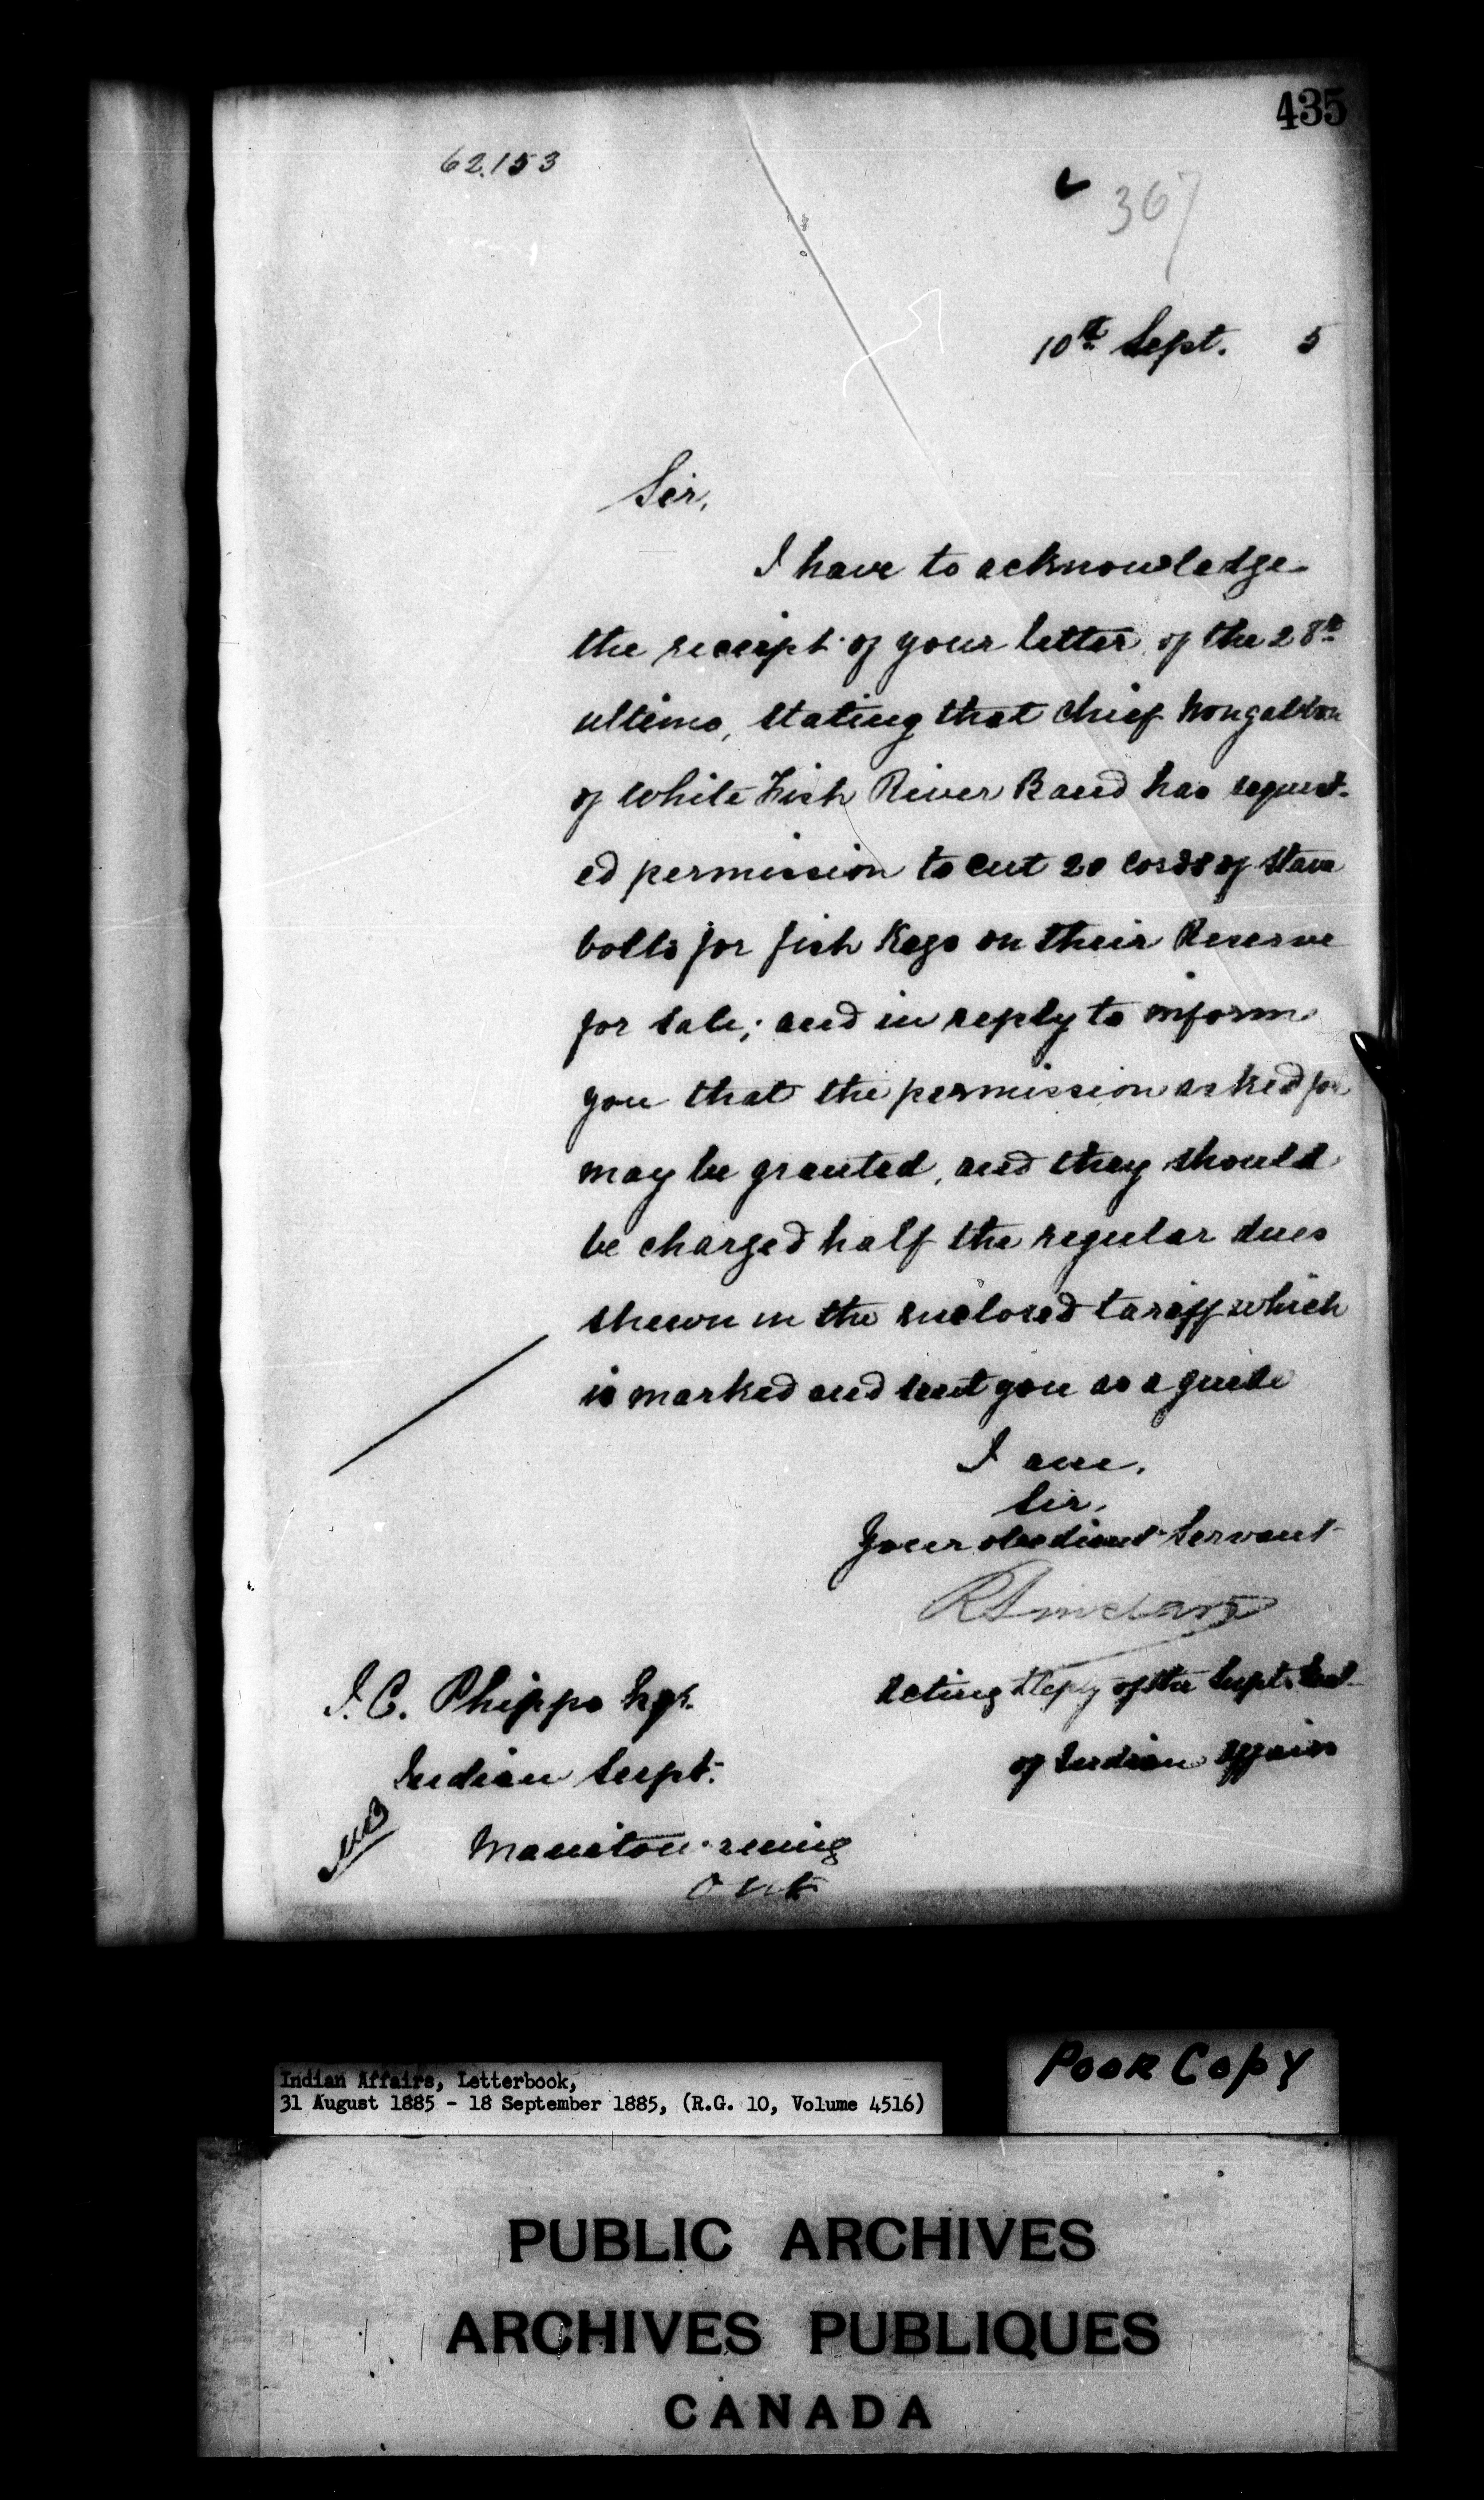 435
62.153
367
10th Sept. 5
Sir,
I have to acknowledge
the receipt of your letter of the 28th
ultimo, stating that Chief
of White Fish River Band has request-
ed permission to cut 20 cords of stave
bolts for fish Kegs on their Reserve
for sale; and in reply to inform
you that the permission asked for
may be granted, and they should
be charged half the regular dues
shewn in the enclosed tariff which
is marked and sent you as a guide
I am,
Sir,
Your obedient Servant
R Sinclair
Acting Depy of the Supt. Genl.
of Indian Affairs
J. C. Phipps Esqr.
Indian Supt.
Manitowaning
Ont
Indian Affairs, Letterbook,
31 August 1885 - 18 September 1885, (R.G. 10, Volume 4516)
POOR COPY
PUBLIC ARCHIVES
ARCHIVES PUBLIQUES
CANADA